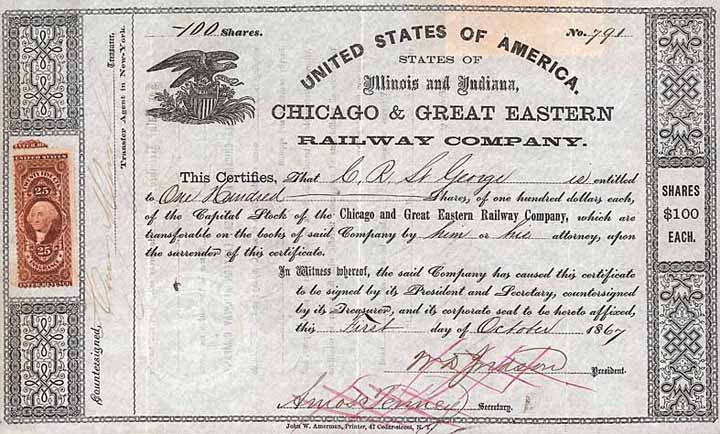 100 Shares. No. 791
UNITED STATES OF AMERICA.
STATES OF
Illinois and Indiana,
CHICAGO & GREAT EASTERN
RAILWAY COMPANY.
This Certifies, That C. R. St George is entitled
to One Hundred Shares, of one hundred dollars each,
of the Capital Stock of the Chicago and Great Eastern Railway Company, which are
transferable on the books of said Company by him or his attorney, upon
the surrender of this certificate.
In Witness whereof, the said Company has caused this certificate
to be signed by its President and Secretary, countersigned
by its Treasurer, and its corporate seal to be hereto affixed,
this First day of October 1867
President.
Amos Tenney Secretary.
John W. Amerman, Printer, 47 Cedar-street, N. Y.
SHARES
$100
EACH.
Countersigned,
Treasurer,
Transfer Agent in New-York.
25
25